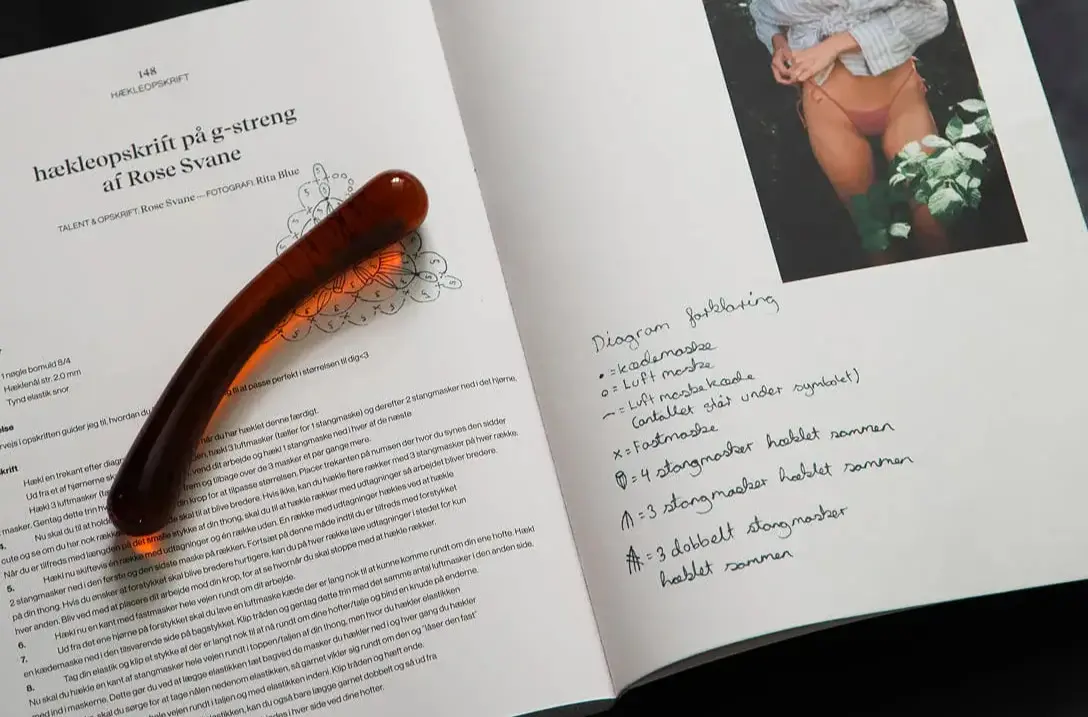 148
HÆKLEOPSKRIFT
hækleopskrift på g-streng
af Rose Svane
TALENT & OPSKRIFT: Rose Svane — FOTOGRAFI: Rita Blue
1 nøgle bomuld 8/4
Hæklenål str. 2.0 mm
Tynd elastik snor
til at passe perfekt i størrelsen til dig<3
i opskriften guider jeg til, hvordan du
når du har hæklet denne færdigt.
Hækl en trekant efter
hækl 3 luftmasker (tæller for 1 stangmaske) og derefter 2 stangmasker ned i det hjørne,
Ud fra et af hjørnerne
vend dit arbejde og hækl 1 stangmaske ned i hver af de næste
Hækl 3 luftmasker
frem og tilbage over de 3 masker et par gange mere.
masker. Gentag dette trin
din krop for at tilpasse størrelsen. Placer trekanten på numsen der hvor du synes den sidder
Nu skal du til at
skal til at blive bredere. Hvis ikke, kan du hækle flere rækker med 3 stangmasker på hver række.
cute og se om du har nok
det smalle stykke af din thong, skal du til at hækle rækker med udtagninger så arbejdet bliver bredere.
Når du er tilfreds med længden på
Hækl nu skiftevis en række med udtagninger og én række uden. En række med udtagninger hækles ved at hækle
5.
2 stangmasker ned i den første og den sidste maske på rækken. Fortsæt på denne måde indtil du er tilfreds med forstykket
på din thong. Hvis du ønsker at forstykket skal blive bredere hurtigere, kan du på hver række lave udtagninger i stedet for kun
hver anden. Bliv ved med at placere dit arbejde mod din krop, for at se hvornår du skal stoppe med at hækle rækker.
6.
Hækl nu en kant med fastmasker hele vejen rundt om dit arbejde.
7.
Ud fra det ene hjørne på forstykket skal du lave en luftmaske kæde der er lang nok til at kunne komme rundt om din ene hofte. Hækl
en kædemaske ned i den tilsvarende side på bagstykket. Klip tråden og gentag dette trin med det samme antal luftmasker i den anden side.
8.
Tag din elastik og klip et stykke af der er lang nok til at nå rundt om dine hofter/talje og bind en knude på enderne.
Nu skal du hækle en kant af stangmasker hele vejen rundt i toppen/taljen af din thong, men hvor du hækler elastikken
med ind i maskerne. Dette gør du ved at lægge elastikken tæt bagved de masker du hækler ned i og hver gang du hækler
skal du sørge for at tage nålen nedenom elastikken, så garnet vikler sig rundt om den og "låser den fast"
hele vejen rundt i taljen og med elastikken inden i. Klip tråden og hæft ende.
elastikken, kan du også bare lægge garnet dobbelt og så ud fra
i hver side ved dine hofter.
Diagram forklaring
• = kædemaske
o = Luft maske
⌒ = Luft maskekæde
(antallet står under symbolet)
x = Fastmaske
= 4 stangmasker hæklet sammen
= 3 stangmasker hæklet sammen
= 3 dobbelt stangmasker
hæklet sammen